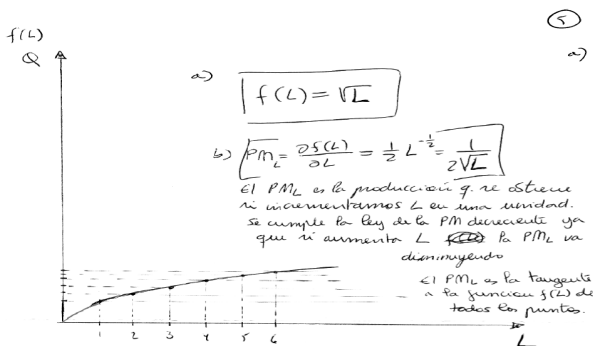 5
f(L)
Q
a)
a) f(L) = √L
b) PM_L = ∂f(L)/∂L = 1/2 L^-1/2 = 1/2√L
El PM_L es la producción q. se obtiene
si incrementamos L en una unidad.
Se cumple la ley de la PM decreciente ya
que si aumenta L la PM_L va
disminuyendo
El PM_L es la tangente
a la funcion f(L) de
todos los puntos.
1 2 3 4 5 6
L